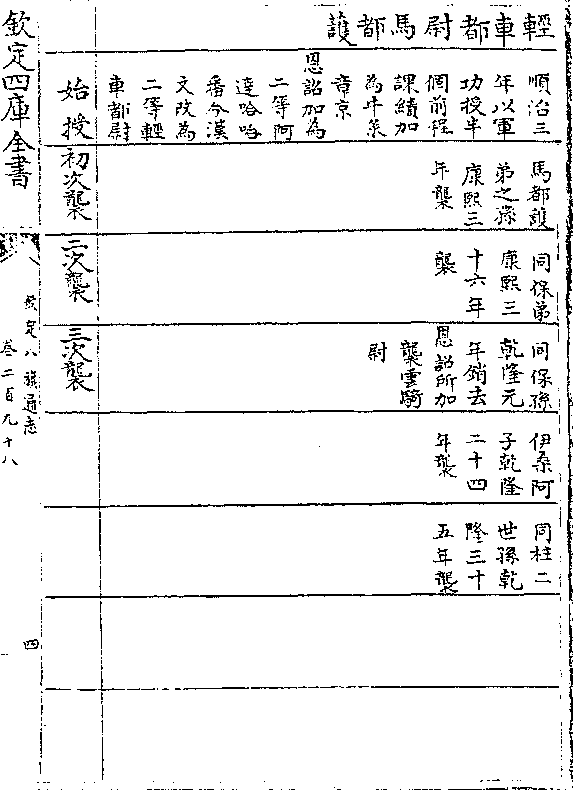 輕車都尉馬都護
順治三
年以軍
功授半
個前程
課績加
為牛彔
章京
恩詔加為
二等阿
達哈哈
番今漢
文改為
二等輕
車都尉
始授
馬都護
弟之孫
康熙三
年襲
初次襲
同保弟
康熙三
十六年
襲
二次襲
同保孫
乾隆元
年銷去
恩詔所加
襲雲騎
尉
三次襲
伊桑阿
子乾隆
二十四
年襲
同柱二
世孫乾
隆三十
五年襲
欽定四庫全書
欽定八旗通志
卷二百九十八
四